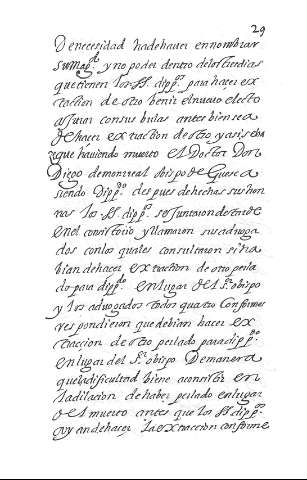 29
De necesidad ha de hacer en nombrar
su Mag.d y no poder dentro de los tres dias
que tienen los SS. dipp.os para hacer ex
traccion de otro benir el nuevo electo
a jurar con sus bulas antes bien se a
de hacer extraccion de otro y assi es
que haviendo muerto el Doctor Don
Diego de monrreal obispo de Guesca
siendo Dipp.do despues de hechas sus hon
rras los SS. dipp.os se juntaron
en el consistorio y llamaron sus aduoga
dos con los quales consultaron si ha
bian de hacer extraction de otro perla
do para dipp.do en lugar del S.r obispo
y los advogados todos quatro conformes
respondieron que debian hacer ex
traccion de otro perlado para dipp.do
en lugar del S.r obispo De manera
que la dificultad biene a consistir en
la dilacion de haber perlado en lugar
del muerto antes que los SS. dipp.os
an de hacer la extraccion conforme